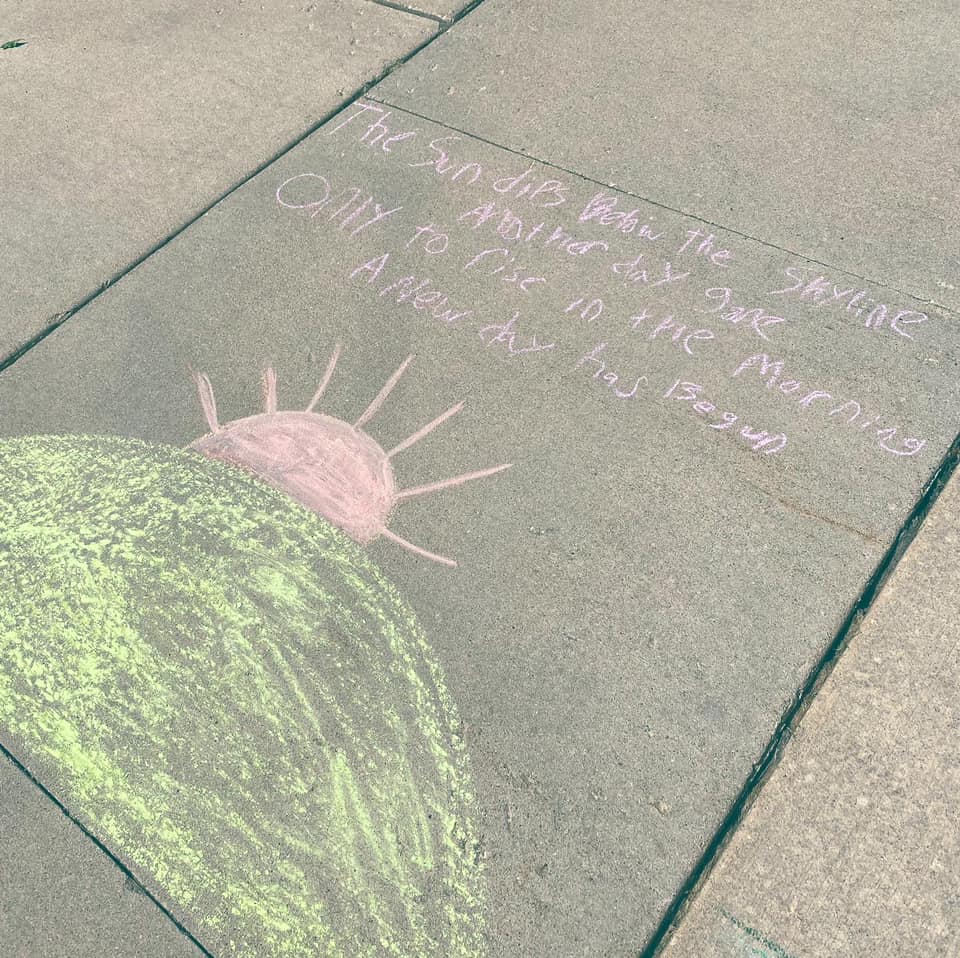 The Sun dips Below The Skyline
Another day gone
Olly to rise in the Morning
A New day has Begun